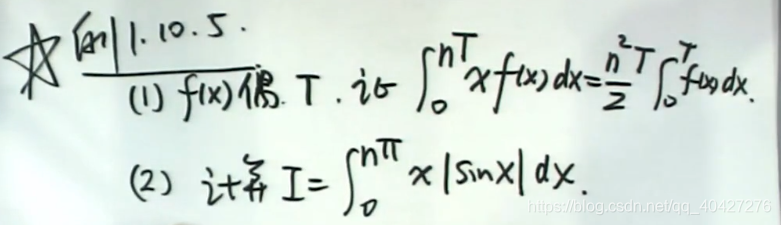 ☆ 例 1.10.5.
(1) f(x)偶. T. 证 ∫₀ⁿᵀ x f(x) dx = n²T/2 ∫₀ᵀ f(x) dx.
(2) 计算 I = ∫₀ⁿᵖⁱ x |sin x| dx.
https://blog.csdn.net/qq_40427276